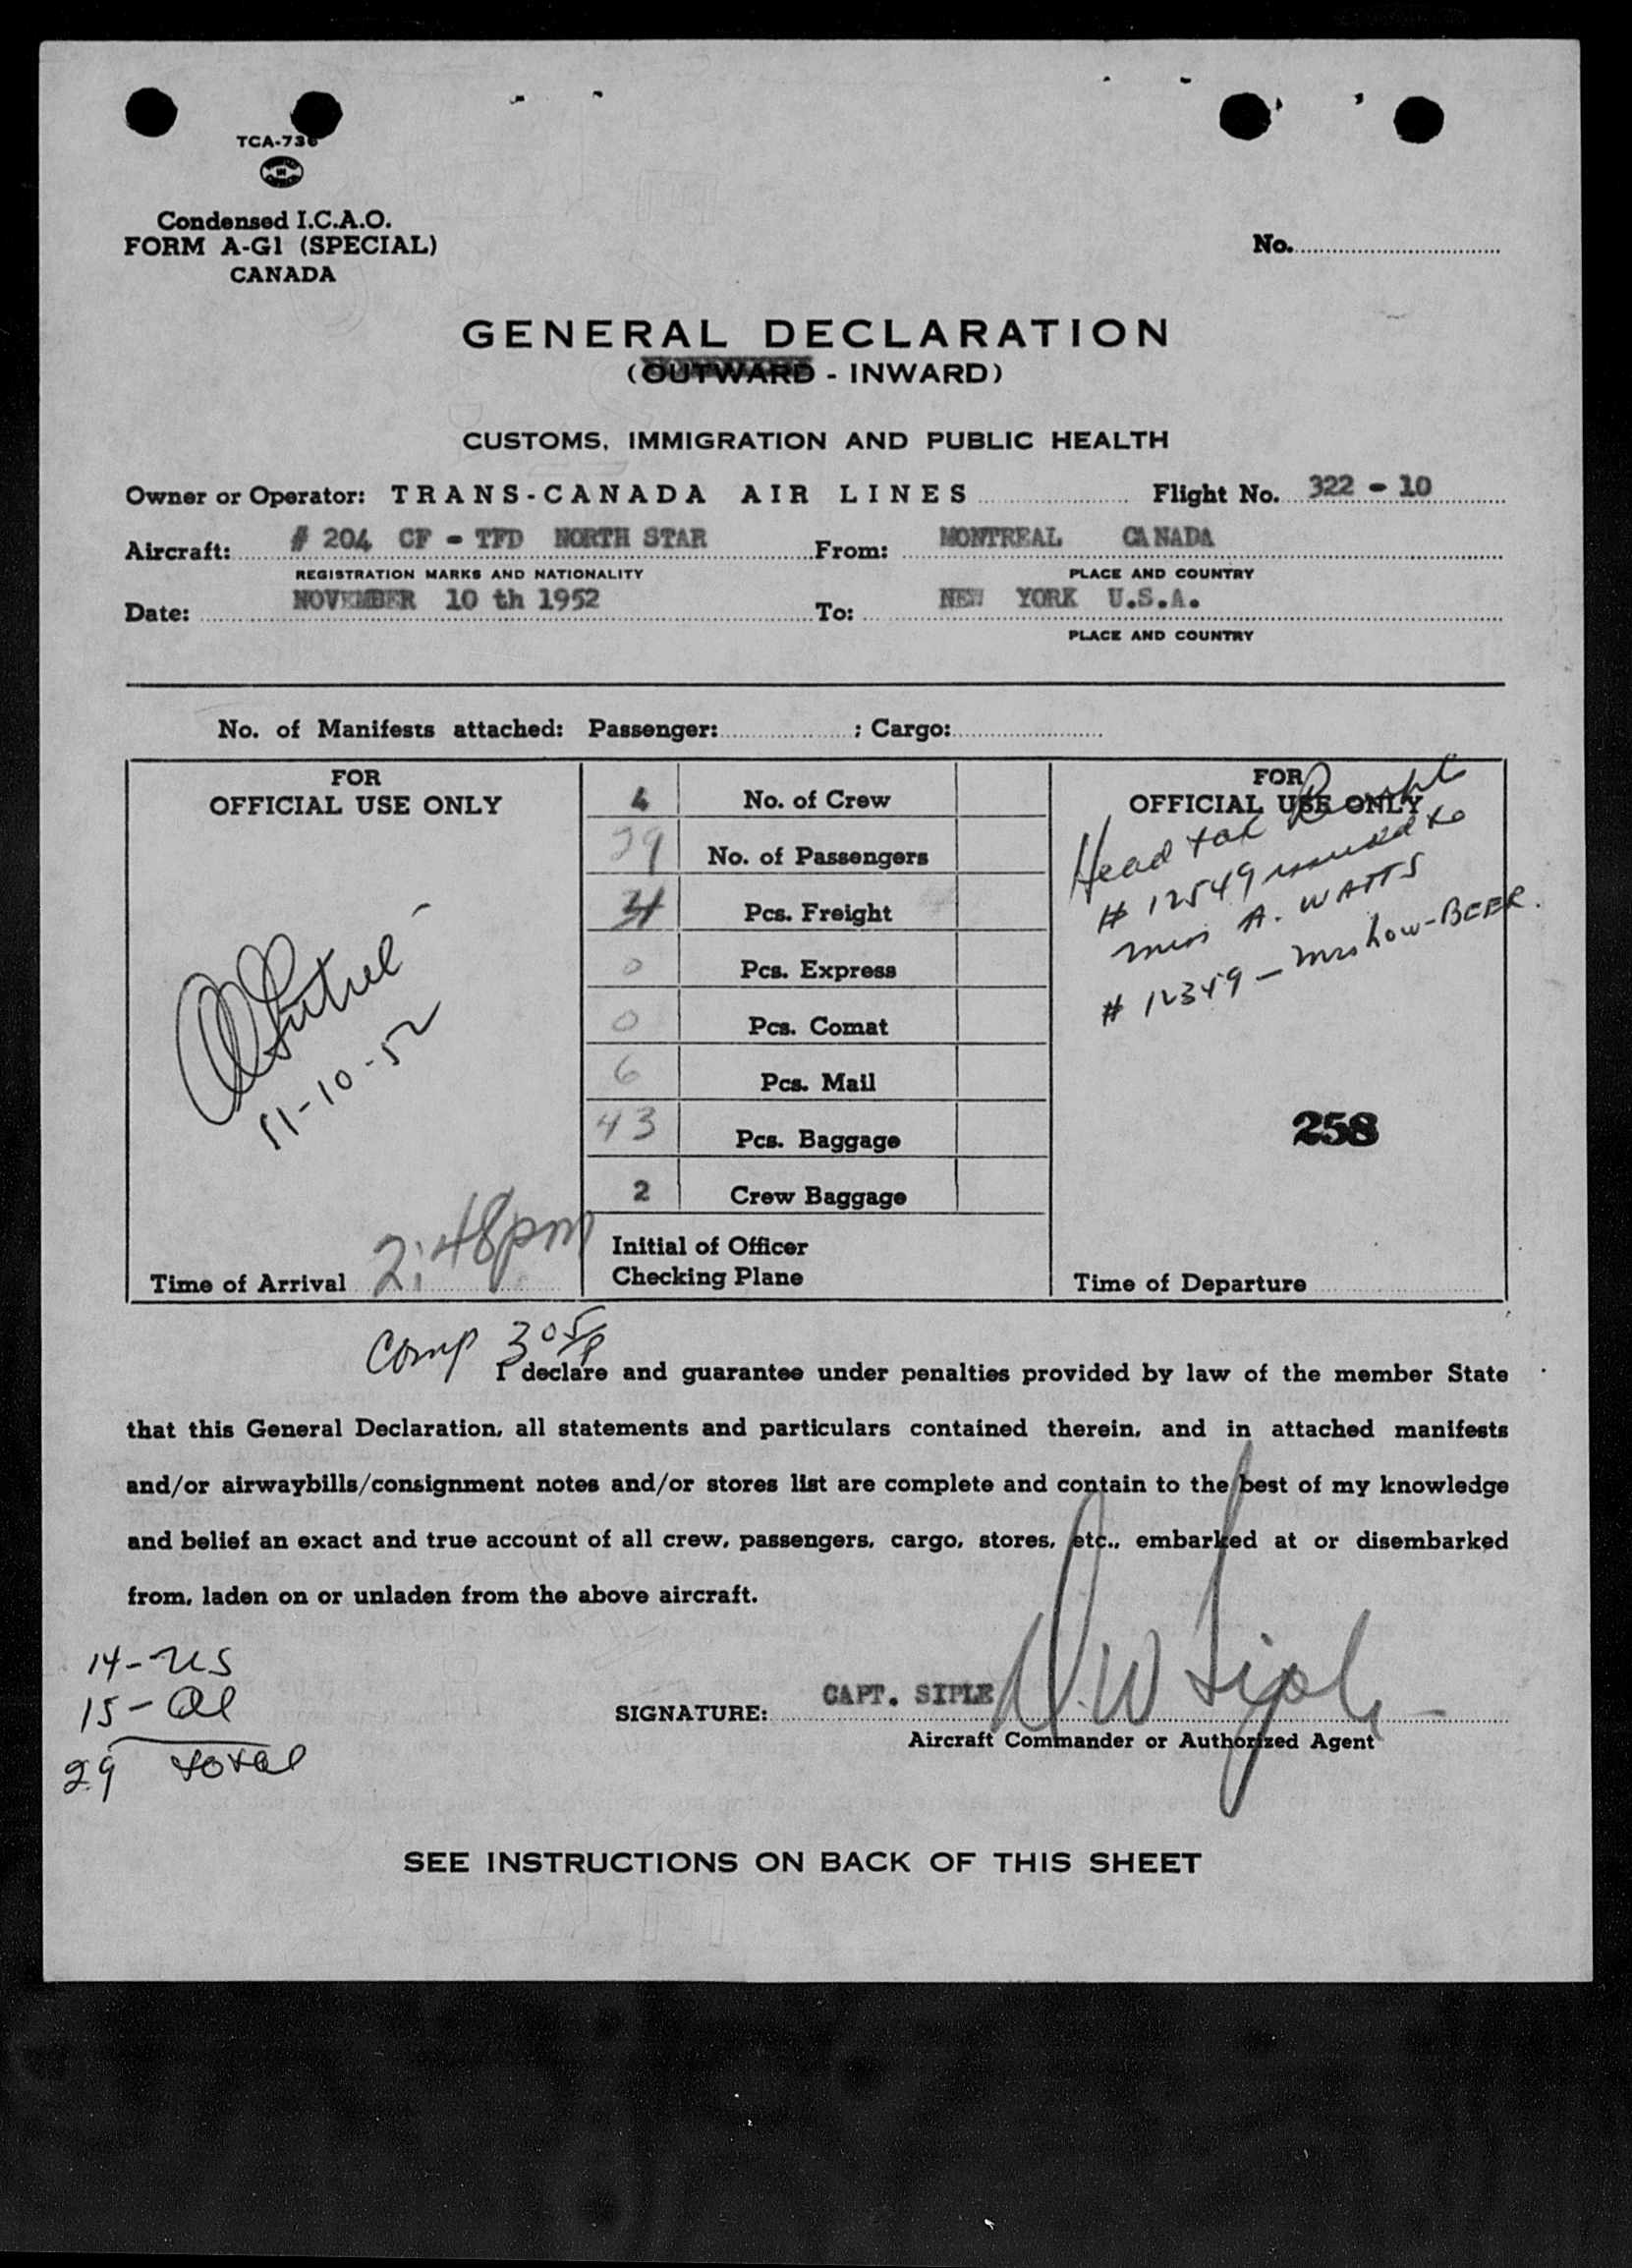 TCA-736
Condensed I.C.A.O.
FORM A-G1 (SPECIAL)
CANADA
No.
GENERAL DECLARATION
(OUTWARD - INWARD)
CUSTOMS, IMMIGRATION AND PUBLIC HEALTH
Owner or Operator: TRANS-CANADA AIR LINES Flight No. 322 - 10
Aircraft: # 204 CF - TFD NORTH STAR From: MONTREAL CANADA
REGISTRATION MARKS AND NATIONALITY PLACE AND COUNTRY
Date: NOVEMBER 10 th 1952 To: NEW YORK U.S.A.
PLACE AND COUNTRY
No. of Manifests attached: Passenger: ; Cargo:
FOR
OFFICIAL USE ONLY
11-10-52
Time of Arrival 2:48pm
4 No. of Crew
29 No. of Passengers
Pcs. Freight
0 Pcs. Express
0 Pcs. Comat
6 Pcs. Mail
43 Pcs. Baggage
2 Crew Baggage
Initial of Officer
Checking Plane
FOR
OFFICIAL USE ONLY
Head tax Receipt
# 12549 issued to
Miss A. WATTS
# 12349 - Mrs how-BEER.
258
Time of Departure
Comp 305p
I declare and guarantee under penalties provided by law of the member State
that this General Declaration, all statements and particulars contained therein, and in attached manifests
and/or airwaybills/consignment notes and/or stores list are complete and contain to the best of my knowledge
and belief an exact and true account of all crew, passengers, cargo, stores, etc., embarked at or disembarked
from, laden on or unladen from the above aircraft.
14-US
15-al
29 total
SIGNATURE: CAPT. SIPLE D.W Siple
Aircraft Commander or Authorized Agent
SEE INSTRUCTIONS ON BACK OF THIS SHEET